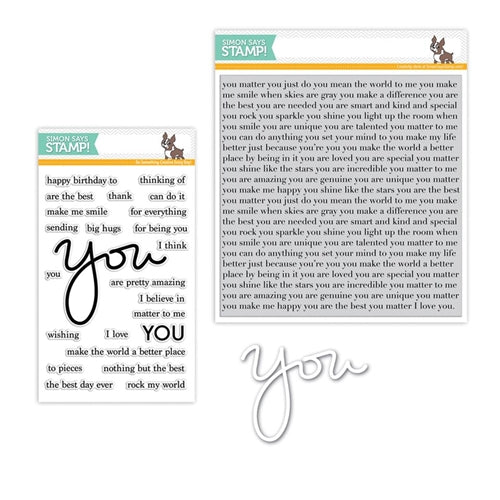 SIMON SAYS
STAMP!
you matter you just do you mean the world to me you make
me smile when skies are gray you make a difference you are
the best you are needed you are smart and kind and special
you rock you sparkle you shine you light up the room when
you smile you are unique you are talented you matter to me
you can do anything you set your mind to you make my life
better just because you're you you make the world a better
place by being in it you are loved you are special you matter
you shine like the stars you are incredible you matter to me
you are amazing you are genuine you are unique you matter
you make me happy you shine like the stars you are the best
you matter you make a difference you are
the best you are needed you are smart and kind and special
you rock you sparkle you shine you light up the room when
you smile you are unique you are talented you matter to me
you can do anything you set your mind to you make my life
better just because you're you you make the world a better
place by being in it you are loved you are special you matter
you shine like the stars you are incredible you matter to me
you are amazing you are genuine you are unique you matter
you make me happy you are the best you matter I love you.
SIMON SAYS
STAMP!
Do Something Creative Every Day!
happy birthday to thinking of
are the best thank can do it
make me smile for everything
sending big hugs for being you
you
I think
you
are pretty amazing
I believe in
matter to me
wishing I love YOU
make the world a better place
to pieces nothing but the best
the best day ever rock my world
you